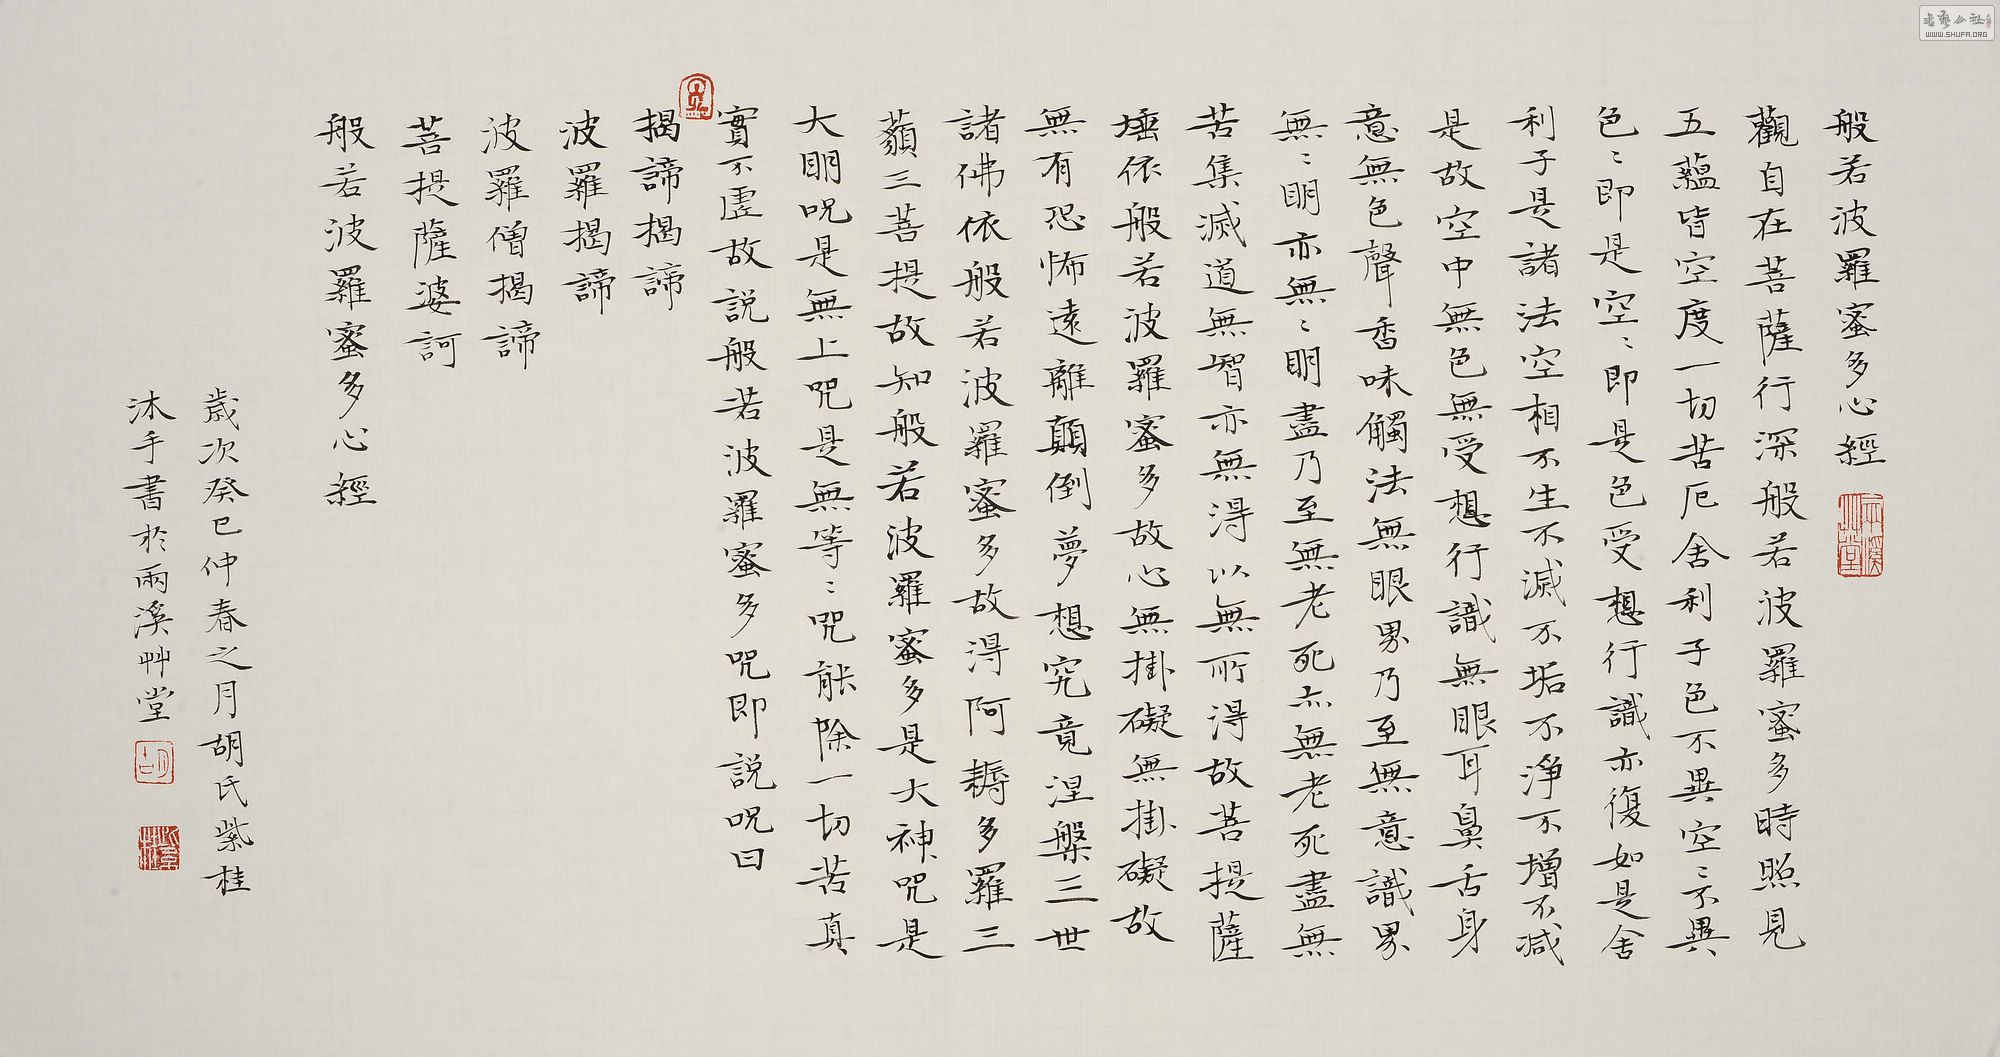 般若波羅蜜多心經
觀自在菩薩行深般若波羅蜜多時照見
五蘊皆空度一切苦厄舍利子色不異空〻不異
色〻即是空〻即是色受想行識亦復如是舍
利子是諸法空相不生不滅不垢不淨不增不減
是故空中無色無受想行識無眼耳鼻舌身
意無色聲香味觸法無眼界乃至無意識界
無〻明亦無〻明盡乃至無老死亦無老死盡無
苦集滅道無智亦無得以無所得故菩提薩
埵依般若波羅蜜多故心無掛礙無掛礙故
無有恐怖遠離顛倒夢想究竟涅槃三世
諸佛依般若波羅蜜多故得阿耨多羅三
藐三菩提故知般若波羅蜜多是大神咒是
大明咒是無上咒是無等〻咒能除一切苦真
實不虛故説般若波羅蜜多咒即説咒曰
揭諦揭諦
波羅揭諦
波羅僧揭諦
菩提薩婆訶
般若波羅蜜多心經
歲次癸巳仲春之月胡氏紫桂
沐手書於兩溪艸堂
WWW.SHUFA.ORG